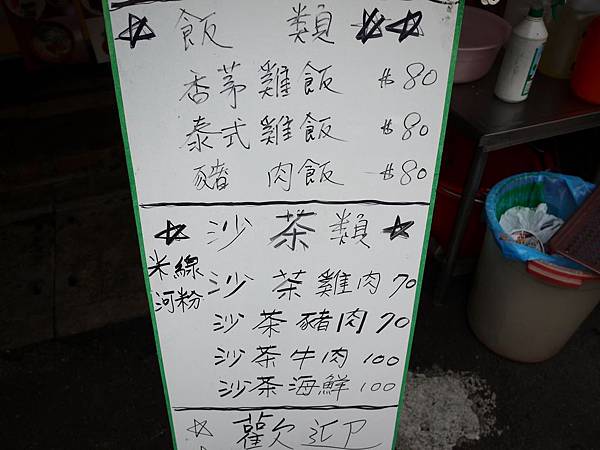 ☆ 飯 類 ☆☆
香茅雞飯 $80
泰式雞飯 $80
豬 肉飯 $80
☆ 沙茶類 ☆
米線
河粉
沙 茶雞肉 70
沙茶豬肉 70
沙茶牛肉 100
沙茶海鮮 100
☆ 歡迎